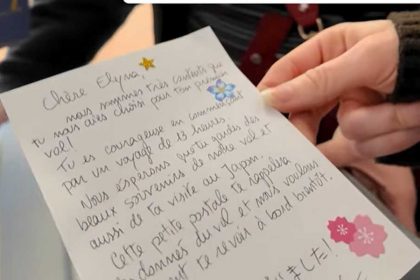 Chère Elyna
nous sommes très contents que
tu nous aies choisi pour ton premier
vol!
Tu es courageuse en commençant
par un voyage de 13 heures
Nous espérons que tu gardes des
beaux souvenirs de notre vol et
aussi de ta visite au Japon.
Cette petite postale te rappelera
données du vol et nous voulons
te revoir à bord bientôt.
ました!